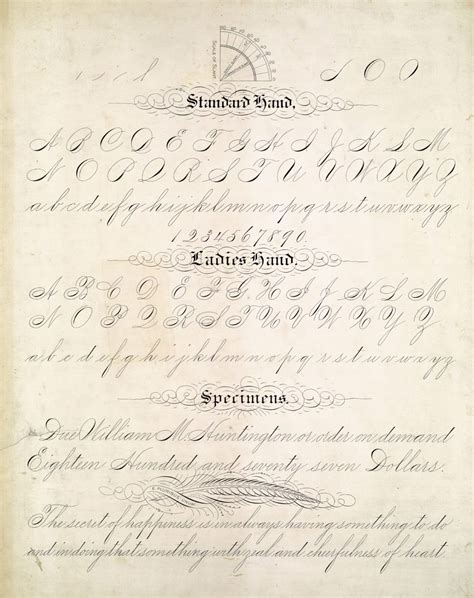 SCALE OF SLANT
Standard Hand.
A B C D E F G H I J K L M
N O P Q R S T U V W X Y Z
a b c d e f g h i j k l m n o p q r s t u v w x y z
1 2 3 4 5 6 7 8 9 0.
Ladies Hand.
A B C D E F G H I J K L M
N O P Q R S T U V W X Y Z
a b c d e f g h i j k l m n o p q r s t u v w x y z
Specimens.
Due William M. Huntington or order on demand
Eighteen Hundred and seventy seven Dollars.
The secret of happiness is in always having something to do
and in doing that something with zeal and cheerfulness of heart